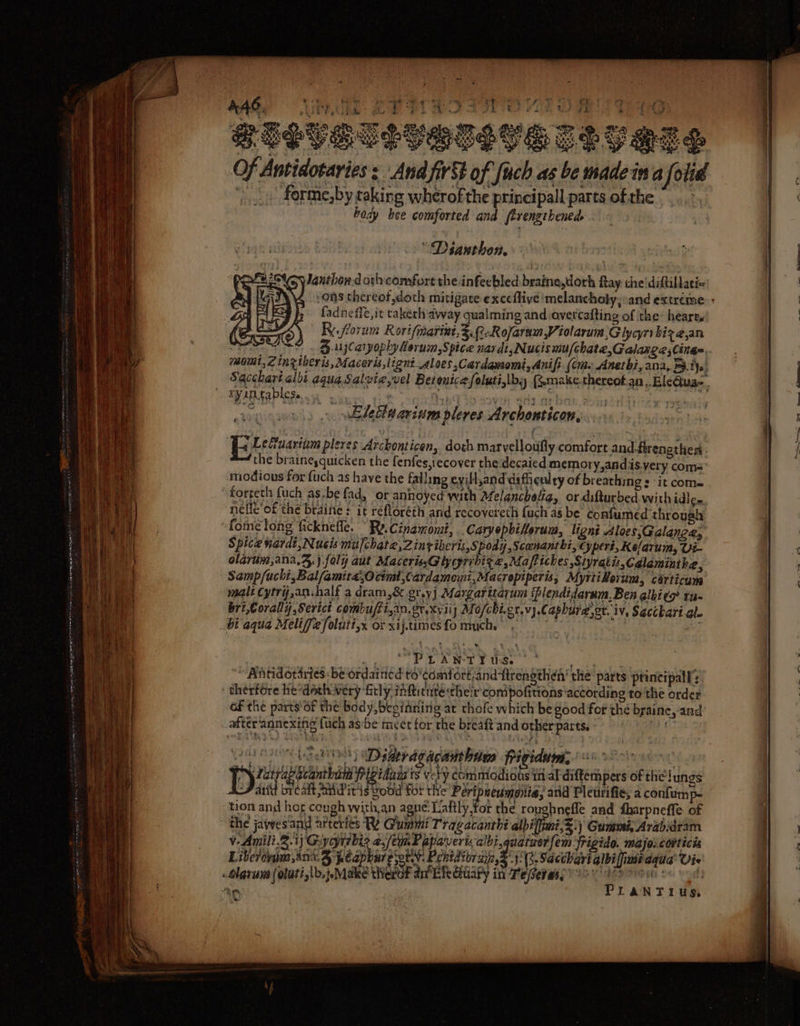 446.
Of Antidotaries : And first of such as be made in a solid
forme, by taking wherof the principall parts of the
body bee comforted and strengthened.
Dianthon.
Ianthon doth comfort the infeebled braine, doth stay the distillati-
ons thereof, doth mitigate excessive melancholy, and extreme
sadnesse, it taketh away qualming and overcasting of the heart.
℞. florum Rorismarini, ℥. Rosarum, Violarum, Glycyrrhizæ, an
Caryophyllorum, Spicæ nardi, Nucis muschatæ, Galangæ, Cina-
momi, Zingiberis, Maceris, ligni Aloes, Cardamomi, Anisi sem. Anethi, ana,
Sacchari albi aqua Salviæ, vel Betonicæ soluti, lb. make thereof an Electua-
ry in tables.
Electuarium pleres Archonticon.
Electuarium pleres Archonticon, doth marvellously comfort and strengthen
the braine, quicken the senses, recover the decaied memory, and is very com-
modious for such as have the falling evill, and difficulty of breathing : it com-
forteth such as be sad, or annoyed with Melancholia, or disturbed with idle-
nesse of the braine : it restoreth and recovereth such as be consumed through
some long sicknesse. ℞. Cinamomi, Caryophillorum, ligni Aloes, Galangæ,
Spicæ nardi, Nucis muschatæ, Zingiberis, Spodij, Scœnanthi, Cyperi, Rosarum, Vi-
olarum, ana, ʒ.j. folij aut Maceris, Glycyrrhizæ, Mastiches, Styracis, Calaminthæ,
Sampsuchi, Balsamitæ, Ocimi, Cardamomi, Macropiperis, Myrtillorum, corticum
mali Cytrij, an. half a dram, & gr. vj Margaritarum splendidarum, Ben albi & ru-
bri, Corallij, Serici combusti, an. gr. xviij Moschi. gr. vj. Caphuræ, gr. iv. Sacchari al-
bi aqua Melissæ soluti, x or xij. times so much.
PLANTIUS.
Antidotaries be ordained to comfort and strengthen the parts principall :
therfore he doth very fitly institute their compositions according to the order
of the parts of the body, beginning at those which be good for the braine, and
after annexing such as be meet for the breast and other parts.
Diatragacanthum frigidum.
Diatragacanthum frigidum is very commodious in al distempers of the lungs
and breast, and it is good for the Peripneumonia, and Pleurisie, a consump-
tion and hot cough with, an ague. Lastly, for the roughnesse and sharpnesse of
the jawes and arteries ℞ Gummi Tragacanthi albissimi, Gummi, Arab. dram
v. Amili. Glycyrrhizæ, sem. Papaveris albi, quatuor sem frigido. majo. corticis
Liberorum, ana. Caphuræ, gr. Penidiorum, Sacchari albissimi aqua Vi-
olarum soluti, lb. j. Make therof an Electuary in Tesseras.
PLANTIUS.